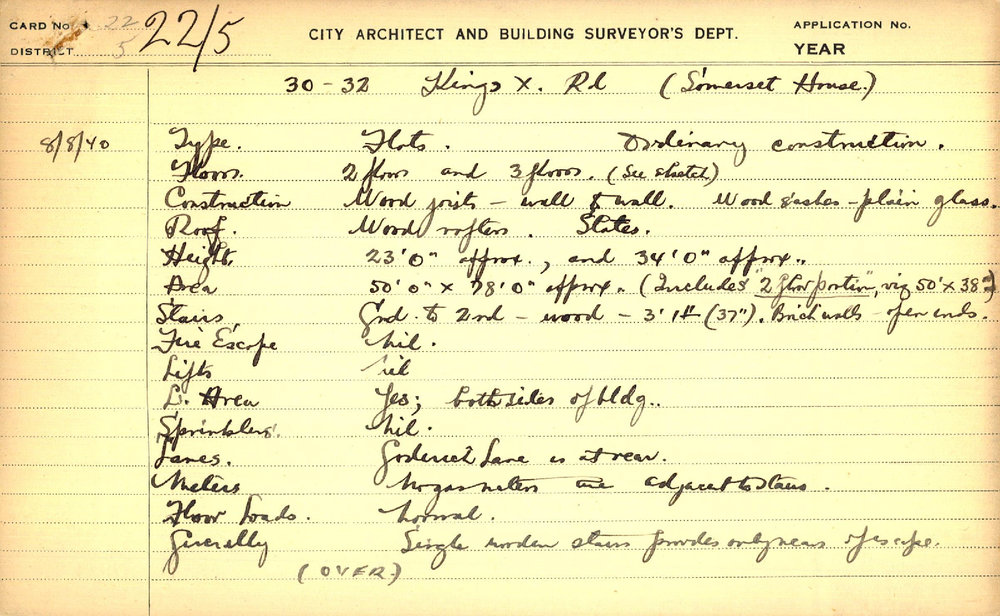 CARD No. 22 22/5 CITY ARCHITECT AND BUILDING SURVEYOR'S DEPT. APPLICATION No.
DISTRICT 5 YEAR
30 - 32 Kings X. Rd (Somerset House.)
8/8/40 Type. Flats. Ordinary construction.
Floors. 2 floors and 3 floors. (See sketch)
Construction Wood joists - wall to wall. Wood sashes - plain glass.
Roof. Wood rafters. Slates.
Height. 23'0" approx., and 34'0" approx.
Area 50'0" x 78'0" approx. (Includes "2 floor portion", viz 50' x 38')
Stairs Grd. to 2nd - wood - 3'1" (37"). Brick walls - open ends.
Fire Escape Nil.
Lifts Nil
L. Area Yes; both sides of bldg.
Sprinklers. Nil.
Lanes. Goderich Lane is at rear.
Meters No gas meters are adjacent to stairs.
Floor Loads. Normal.
Generally Single wooden stairs provides only means of escape.
(OVER)